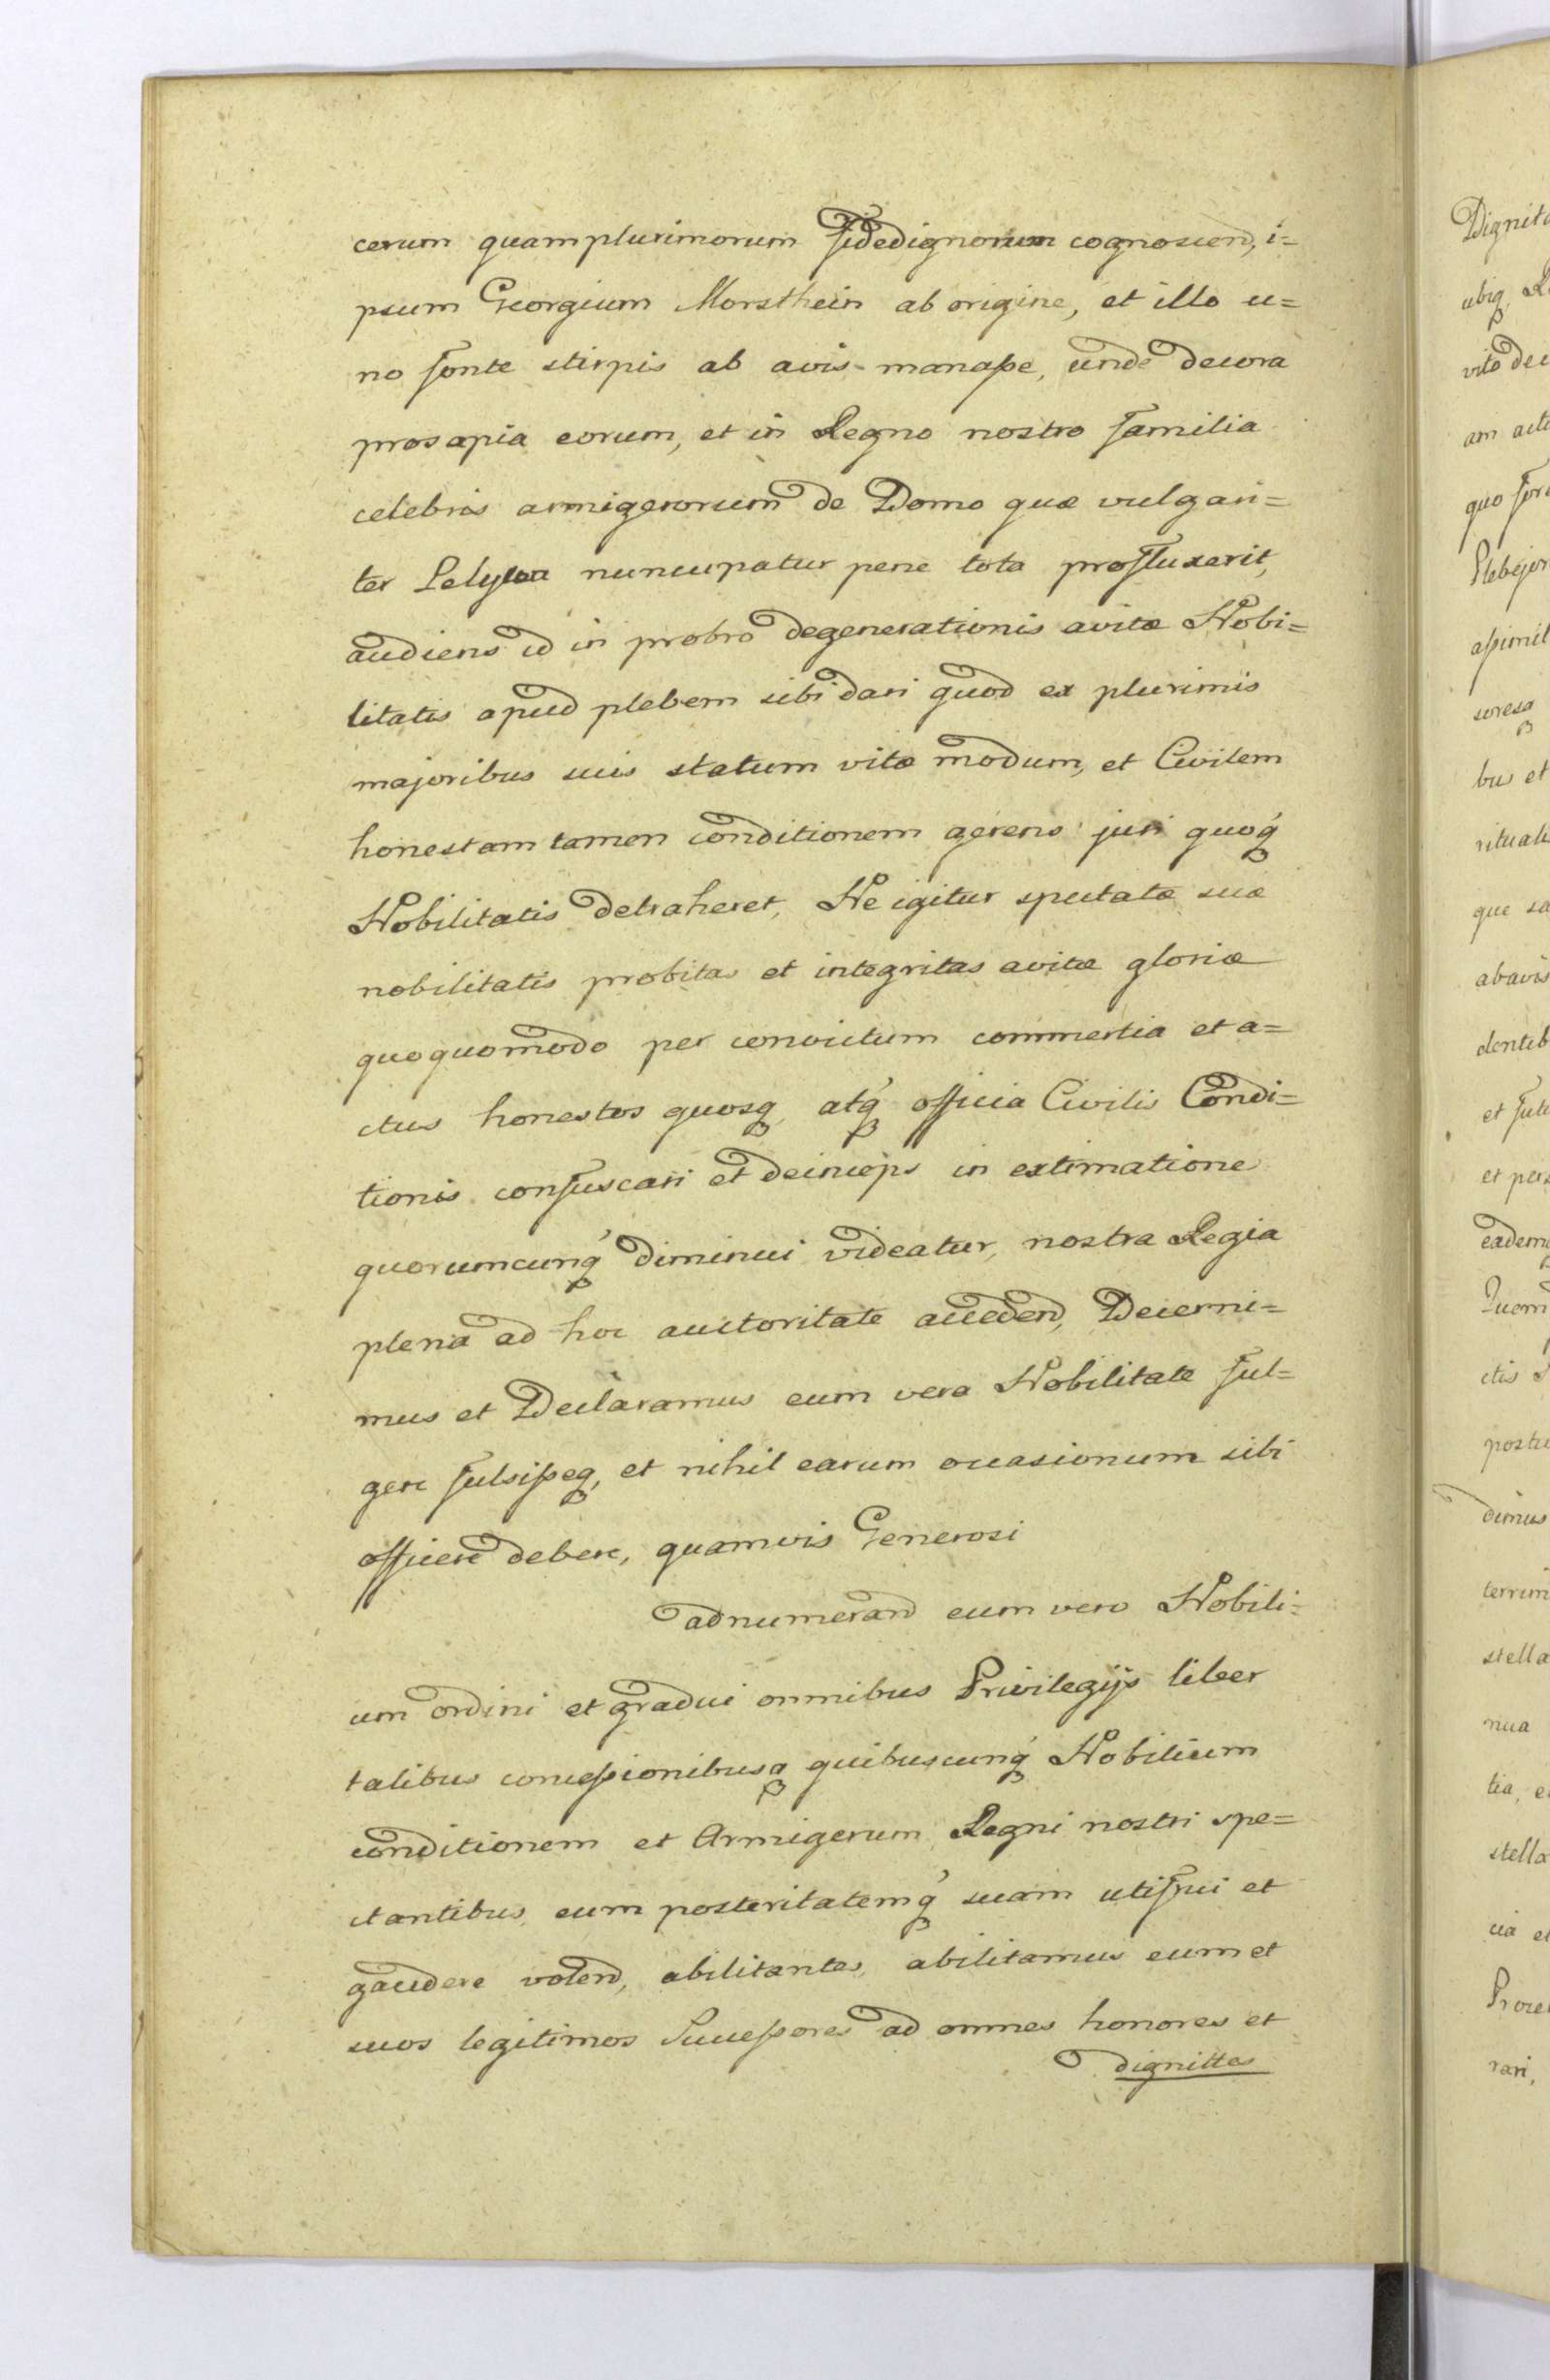 cerum quamplurimorum fidedignorum cognoscend, i=
psum Georgium Morsthein ab origine, et illo u=
no fonte stirpis ab avis manasse, unde decora
prosapia eorum, et in Regno nostro familia
celebris armigerorum de Domo quæ vulgari=
ter nuncupatur pene tota profluxerit,
audiens id in probro degenerationis avitæ Nobi=
litatis apud plebem sibi dari quod ex plurimis
majoribus suis statum vitæ modum, et Civilem
honestam tamen conditionem gerens juri quoq
Nobilitatis detraheret, Ne igitur spectatæ suæ
nobilitatis probitas et integritas avitæ gloriæ
quoquomodo per convictum commertia et a=
ctus honestos quosq, atq officia Civilis Condi=
tionis confuscari et deinceps in extimatione
quorumcunq diminui videatur, nostra Regia
plena ad hoc auctoritate accedend, Decerni=
mus et Declaramus eum vera Nobilitate ful=
gere fulsisseq, et nihil earum occasionum sibi
officere debere, quamvis Generosi
adnumerand eum vero Nobili=
um ordini et gradui omnibus Privilegijs liber
talibus concessionibusq quibuscunq Nobilium
conditionem et Armigerum Regni nostri spe=
ctantibus eum posteritatemq suam uti frui et
gaudere volend, abilitantes, abilitamus eum et
suos legitimos Successores ad omnes honores et
dignittes
Dignit
ubiq
vito dec
am
quo for
Plebejor
assimil
soresq
bus et
rituali
que sa
abavis
denteb
et fut
et per
eadem
Quem
ctis
postu
dimus
terrim
stella
nua
tia, e
stella
cia et
Proce
rari,